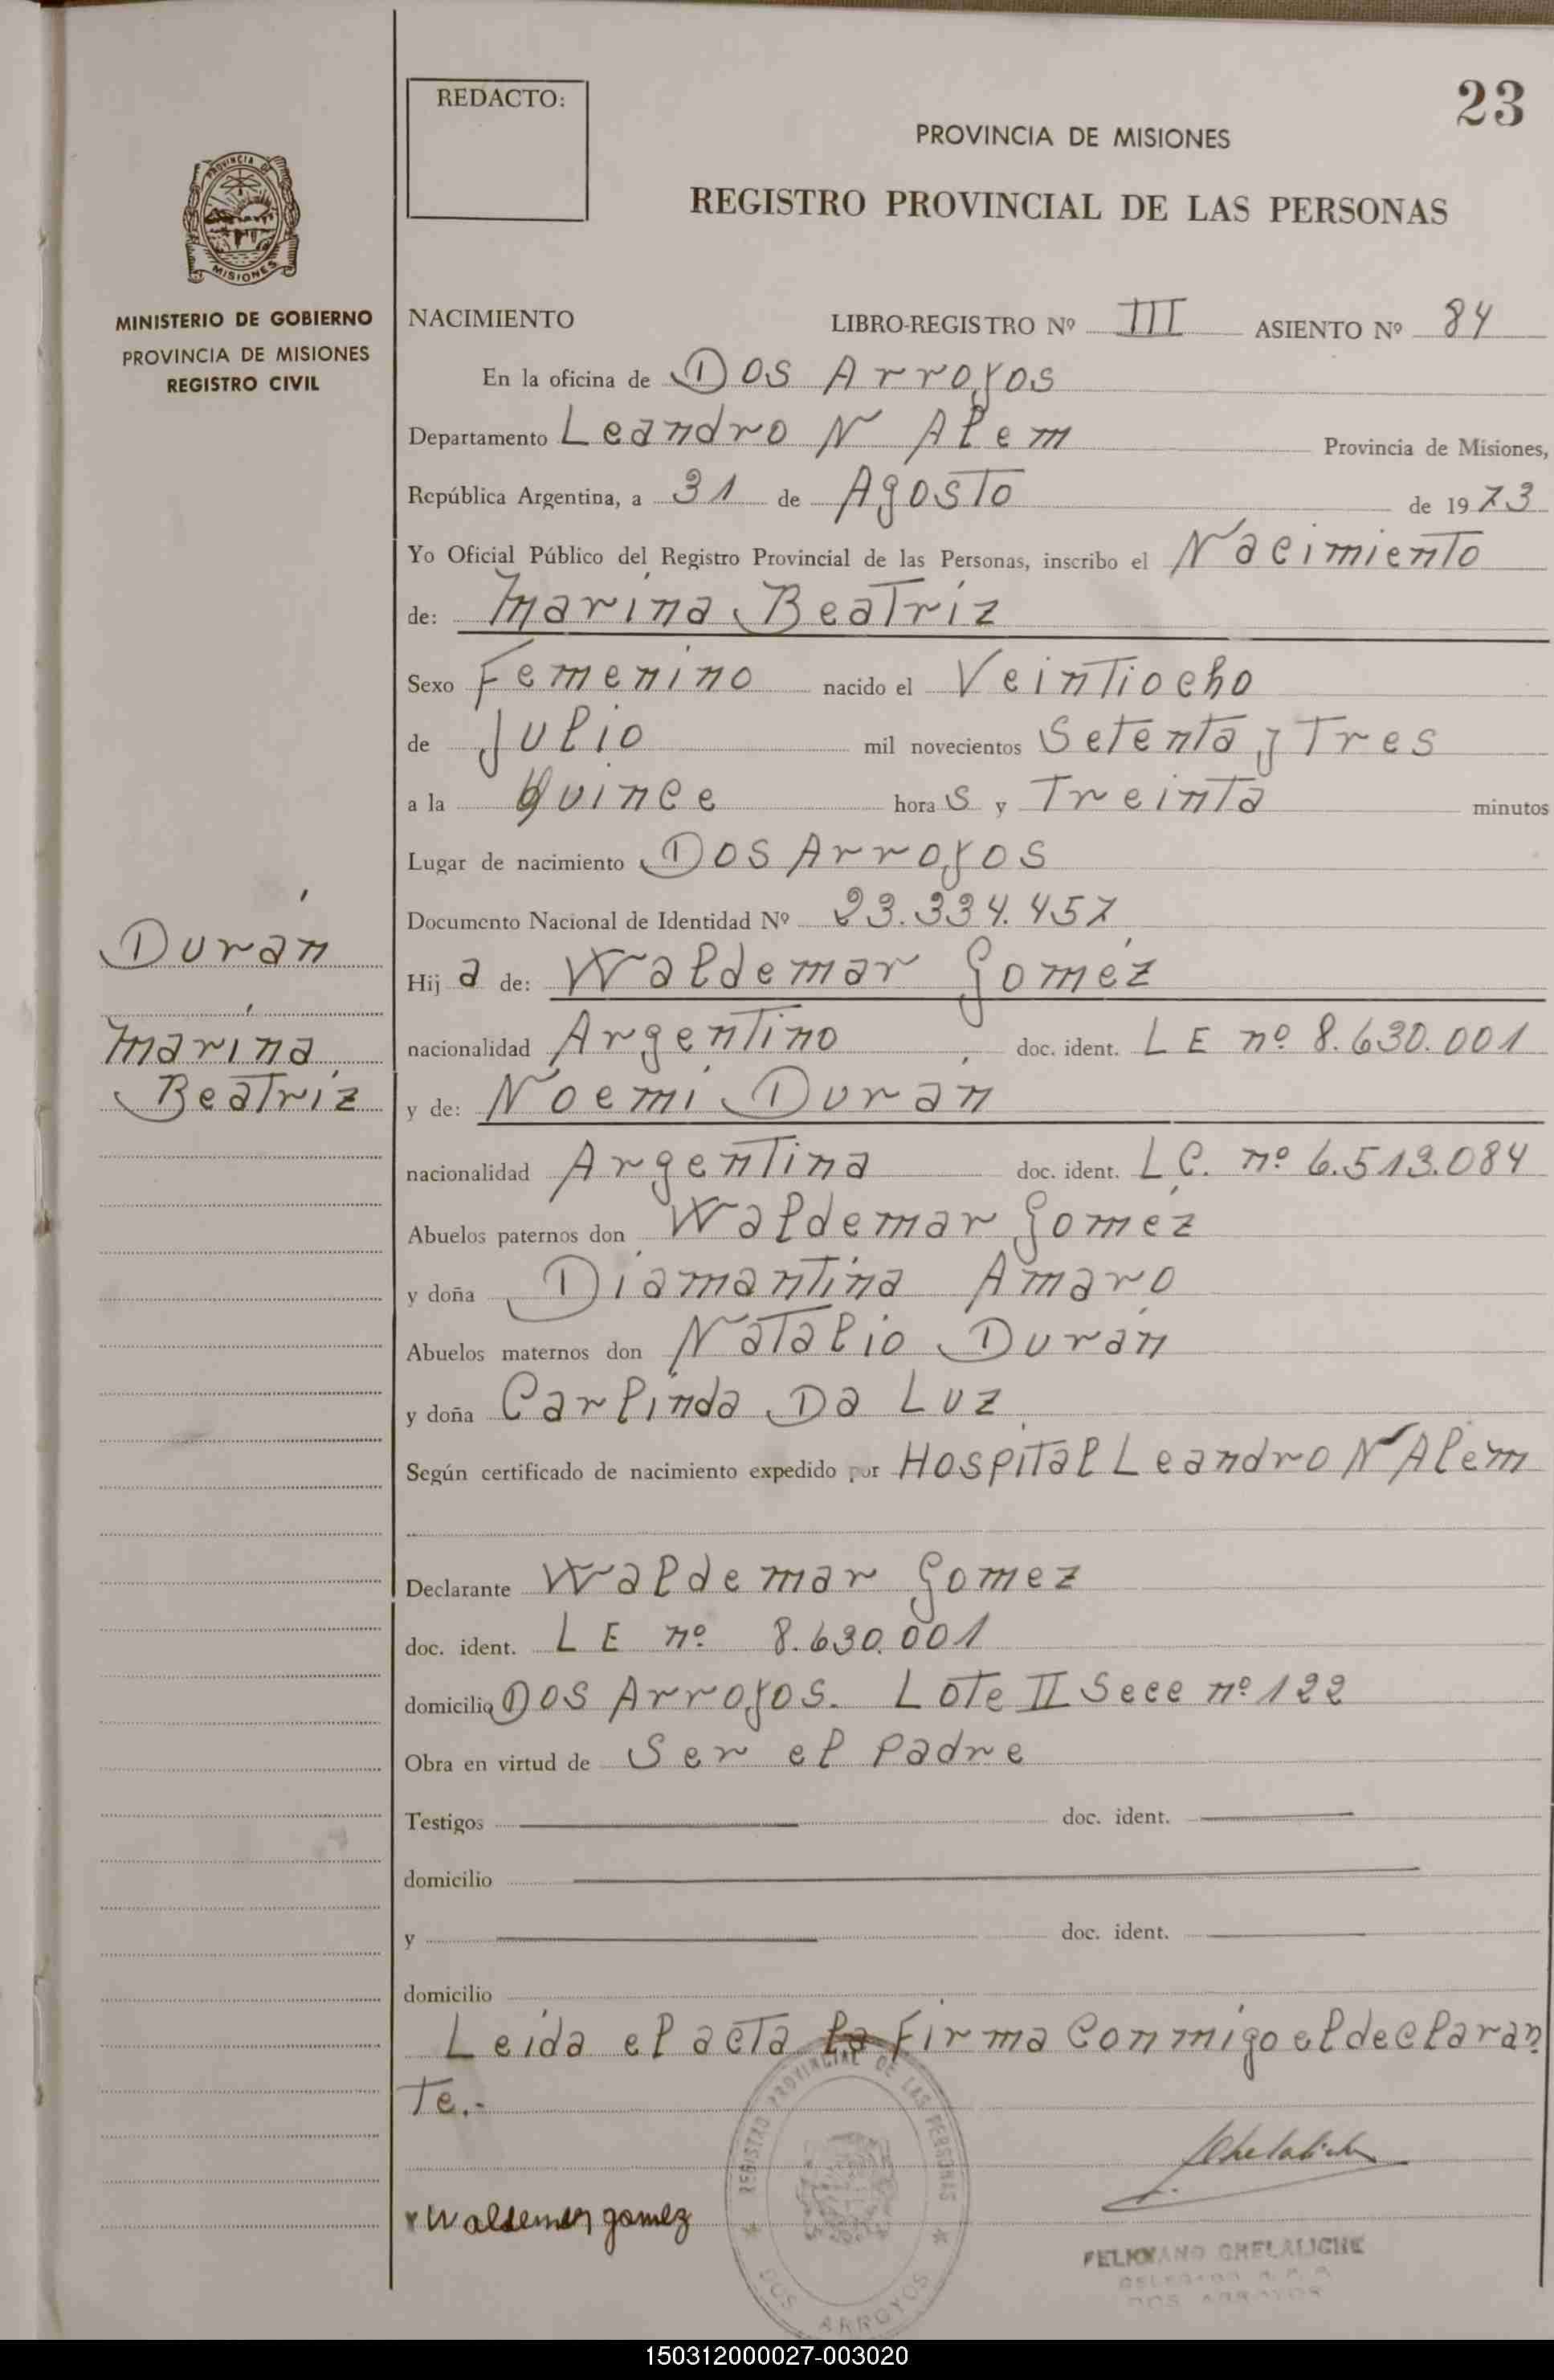 23
REDACTO:
PROVINCIA DE MISIONES
REGISTRO PROVINCIAL DE LAS PERSONAS
PROVINCIA DE
MISIONES
MINISTERIO DE GOBIERNO
PROVINCIA DE MISIONES
REGISTRO CIVIL
NACIMIENTO LIBRO-REGISTRO Nº III ASIENTO Nº 84
En la oficina de Dos Arroyos
Departamento Leandro N Alem Provincia de Misiones,
República Argentina, a 31 de Agosto de 1973
Yo Oficial Público del Registro Provincial de las Personas, inscribo el Nacimiento
de: Marina Beatriz
Sexo Femenino nacido el Veintiocho
de Julio mil novecientos Setenta y Tres
a la Quince horas y Treinta minutos
Lugar de nacimiento Dos Arroyos
Documento Nacional de Identidad Nº 23.334.457
Durán
Marina
Beatriz
Hija de: Waldemar Goméz
nacionalidad Argentino doc. ident. L E nº 8.630.001
y de: Noemi Durán
nacionalidad Argentina doc. ident. L C. nº 6.513.084
Abuelos paternos don Waldemar Goméz
y doña Diamantina Amaro
Abuelos maternos don Natalio Durán
y doña Carlinda Da Luz
Según certificado de nacimiento expedido por Hospital Leandro N Alem
Declarante Waldemar Gomez
doc. ident. L E nº 8.630.001
domicilio Dos Arroyos. Lote II Secc nº 122
Obra en virtud de Ser el Padre
Testigos doc. ident.
domicilio
y doc. ident.
domicilio
Leída el acta la Firma Conmigo el declaran
Te.-
REGISTRO PROVINCIAL DE LAS PERSONAS
DOS ARROYOS
x Waldemar gomez
FELICIANO CHELALICHE
DELEGADO R. P. P.
DOS ARROYOS
150312000027-003020